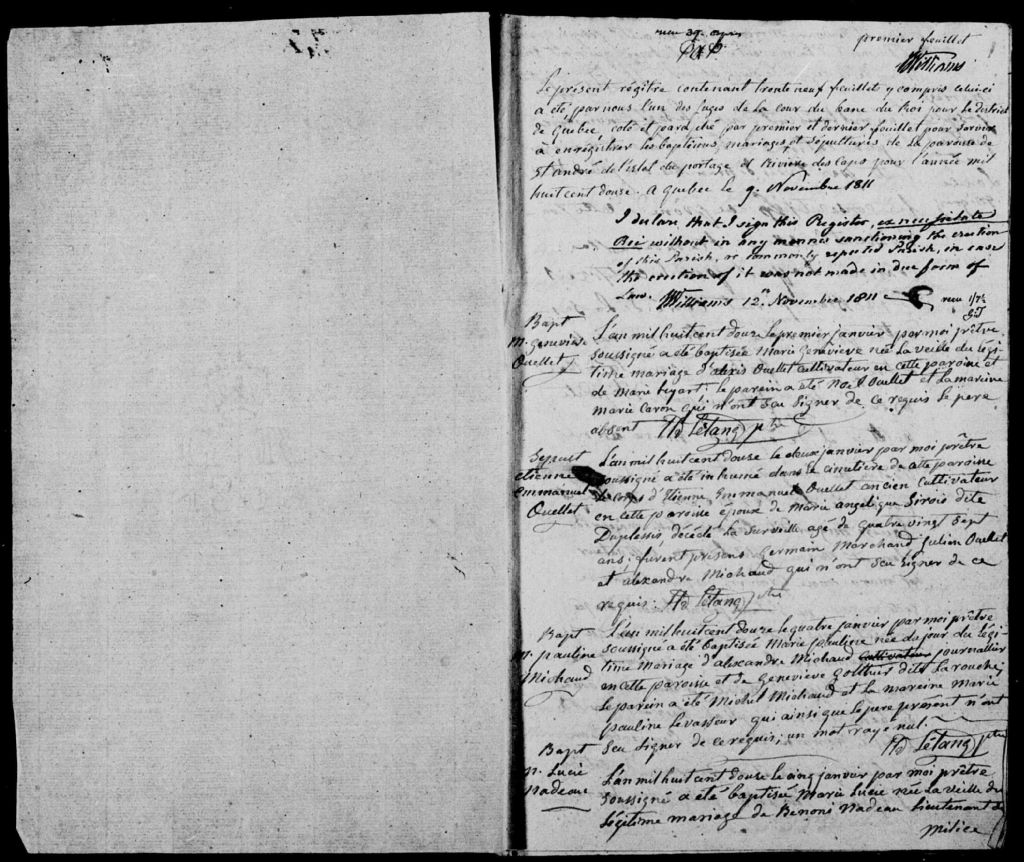 premier feuillet
JWilliams
P & P
Le présent régitre contenant trente neuf feuillet y compris celui-ci
a été par nous l'un des juges de la cour du banc du Roi pour le district
de Quebec, coté et paraphé par premier et dernier feuillet pour servir
à enregistrer les baptêmes, mariages et sépultures de la paroisse de
St andré de l'islet du portage et Riviere des Caps pour l'année mil
huit cent douse. a quebec le 9. Novembre 1811
I declare that I sign this Register, ex necessitate
Rei without in any manner sanctioning the erection
of this Parish, or commonly reputed Parish, in case
the erection of it was not made in due form of
Law. JWilliams 12. Novembre 1811
Bapt
M. Genevieve
Ouellet
L'an mil huit cent douse le premier janvier par moi prêtre
soussigné a été baptisée Marie Genevieve née la veille du légi-
time mariage d'alexis Ouellet cultivateur en cette paroisse et
de Marie ; le parein a été Noël Ouellet et la mareine
Marie Caron qui n'ont seu signer de ce requis le pere
absent Létang ptre
Sepult
etienne
Emmanuel
Ouellet
L'an mil huit cent douse le deux janvier par moi prêtre
soussigné a été inhumé dans le cimetière de cette paroisse
le corps d'Etienne Emmanuel Ouellet ancien cultivateur
en cette paroisse époux de Marie angelique Sirois dite
Duplessis, décédé la surveille agé de quatre vingt sept
ans: furent présens Germain Marchand Julien Ouellet
et alexandre Michaud qui n'ont seu signer de ce
requis. Létang ptre
Bapt
M. pauline
Michaud
L'an mil huit cent douse le quatre janvier par moi prêtre
soussigné a été baptisée Marie pauline née du jour du légi-
time mariage d'alexandre Michaud cultivateur journallier
en cette paroisse et de Genevieve dite La rouche;
le parein a été Michel Michaud et la mareine Marie
pauline Levasseur qui ainsi que le pere présent n'ont
seu signer de ce requis; un mot rayé nul.
Létang ptre
Bapt
M. Lucie
Nadeau
L'an mil huit cent douse le cinq janvier par moi prêtre
soussigné a été baptisée Marie Lucie née la veille du
légitime mariage de Benoni Nadeau Lieutenant de
Milice